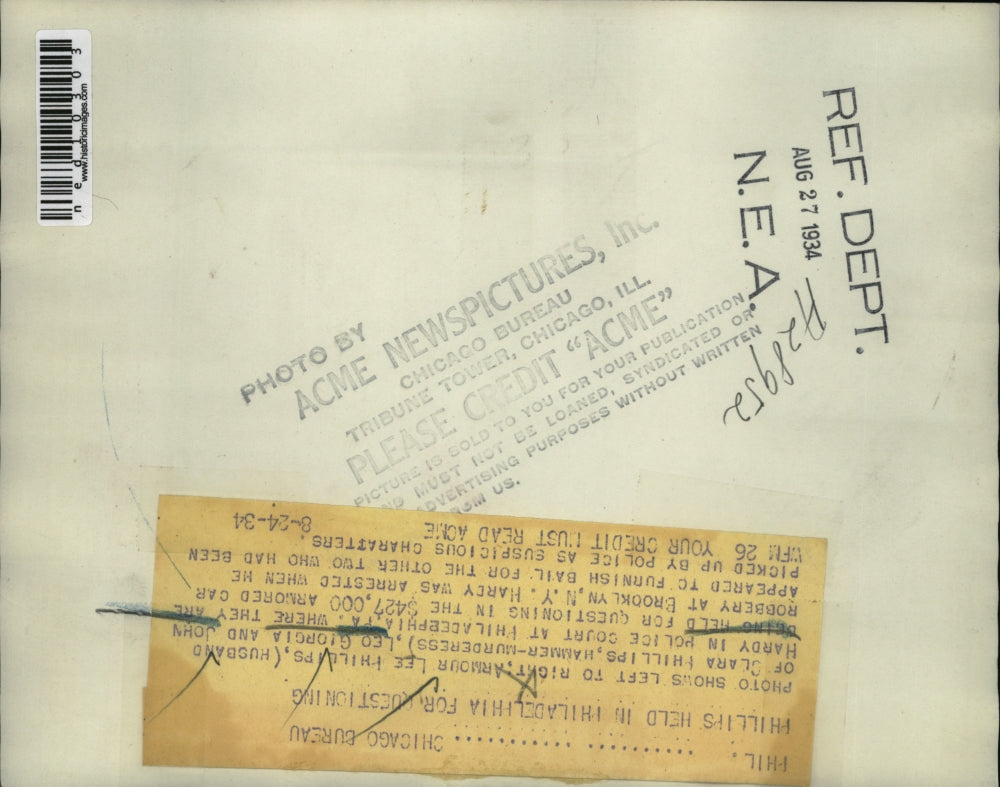 n e d 1 0 3 0 3
www.historicimages.com
REF. DEPT.
AUG 27 1934
N.E.A.
#28952
PHOTO BY
ACME NEWSPICTURES, Inc.
CHICAGO BUREAU
TRIBUNE TOWER, CHICAGO, ILL.
PLEASE CREDIT "ACME"
PICTURE IS SOLD TO YOU FOR YOUR PUBLICATION
AND MUST NOT BE LOANED, SYNDICATED OR
ADVERTISING PURPOSES WITHOUT WRITTEN
FROM US.
PHIL. ........ ............ CHICAGO BUREAU
PHILLIPS HELD IN PHILADELPHIA FOR QUESTIONING
PHOTO SHOWS LEFT TO RIGHT, ARMOUR LEE PHILLIPS, (HUSBAND
OF CLARA PHILLIPS, HAMMER-MURDERESS), LEO GIORGIA AND JOHN
HARDY IN POLICE COURT AT PHILADEPHIA, PA. WHERE THEY ARE
BEING HELD FOR QUESTIONING IN THE $427,000 ARMORED CAR
ROBBERY AT BROOKLYN, N.Y. HARDY WAS ARRESTED WHEN HE
APPEARED TO FURNISH BAIL FOR THE OTHER TWO WHO HAD BEEN
PICKED UP BY POLICE AS SUSPICIOUS CHARATTERS.
WFM 26 YOUR CREDIT MUST READ ACME 8-24-34